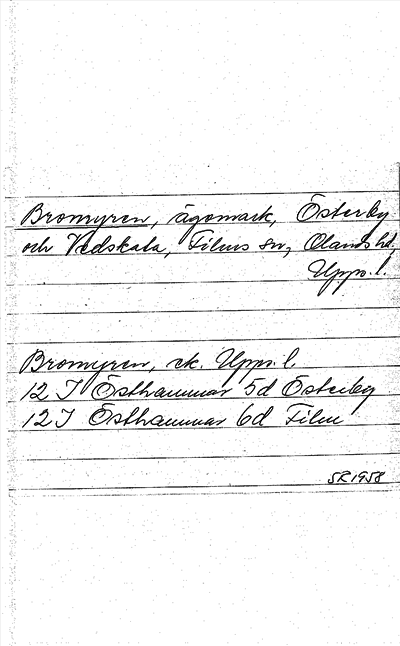 Bromyren, ägomark, Österby
och Vedskala, Films sn, Olands hd,
Upps. l.
Bromyren, ek. Upps. l.
12 I Östhammar 5d Österby
12 I Östhammar 6d Film
SR 1958